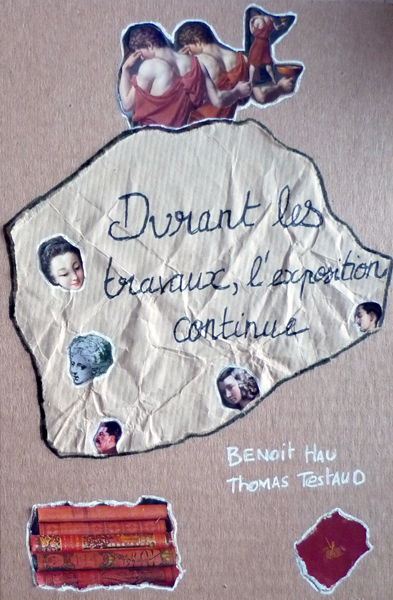 Durant les
travaux, l'exposition
continue
BENOIT HAU
THOMAS TESTAUD